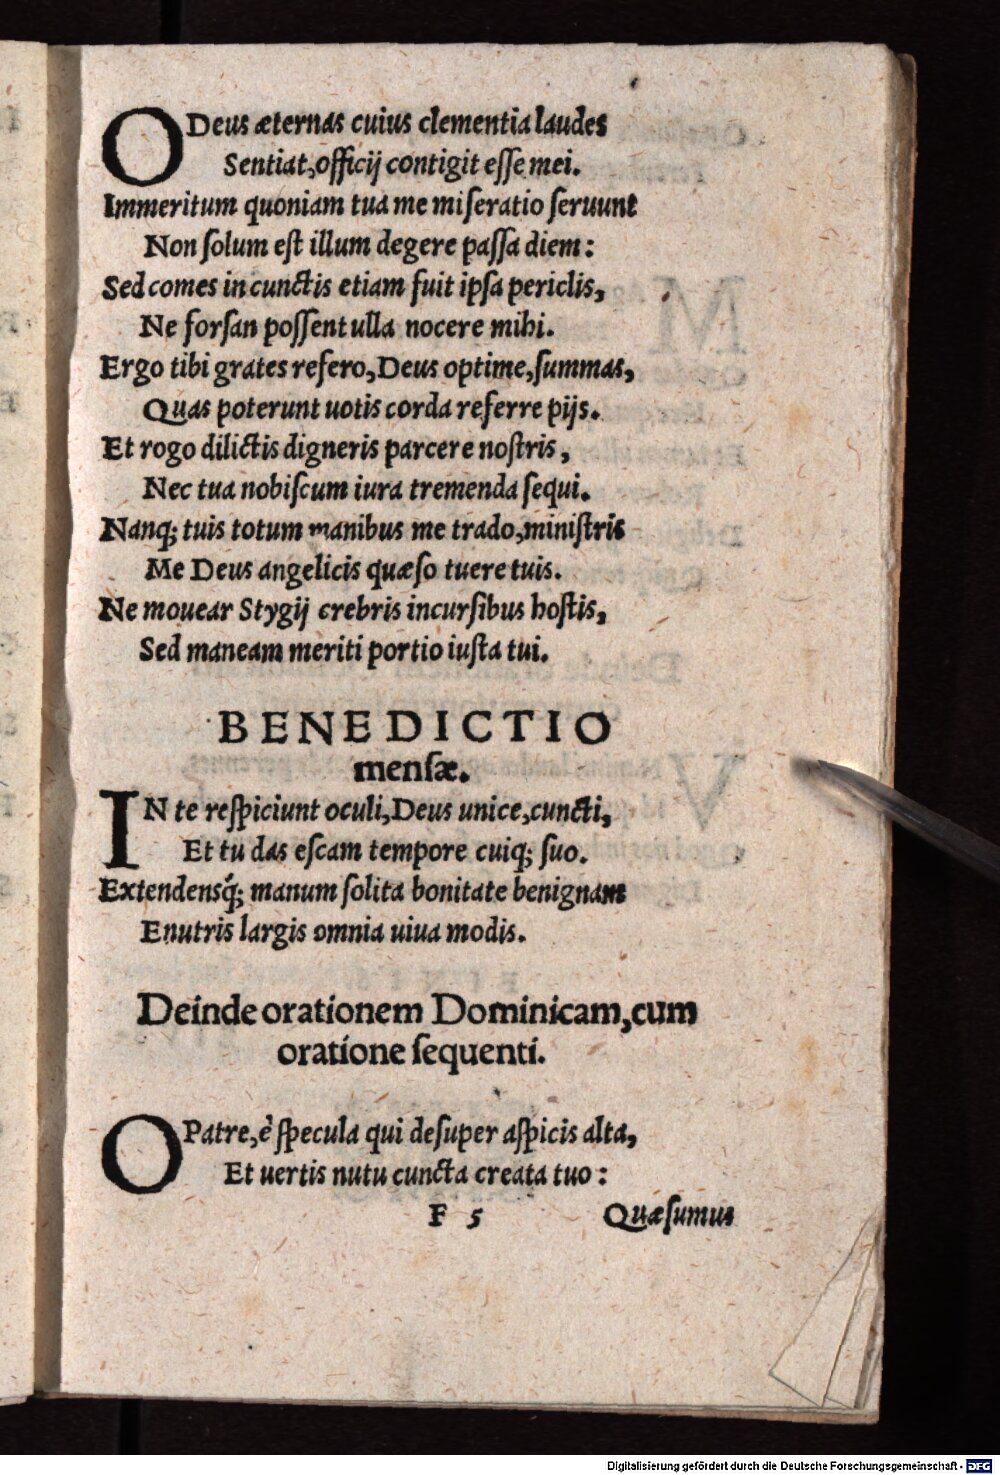 O Deus æternas cuius clementia laudes
Sentiat, officij contigit eſſe mei.
Immeritum quoniam tua me miſeratio ſeruunt
Non ſolum eſt illum degere paſſa diem:
Sed comes in cunctis etiam fuit ipſa periclis,
Ne forſan poſſent ulla nocere mihi.
Ergo tibi grates refero, Deus optime, ſummas,
Quas poterunt uotis corda referre pijs.
Et rogo dilictis digneris parcere noſtris,
Nec tua nobiſcum iura tremenda ſequi.
Nanq; tuis totum manibus me trado, miniſtris
Me Deus angelicis quæſo tuere tuis.
Ne mouear Stygij crebris incurſibus hoſtis,
Sed maneam meriti portio iuſta tui.
BENEDICTIO
menſæ.
IN te reſpiciunt oculi, Deus unice, cuncti,
Et tu das eſcam tempore cuiq; ſuo.
Extendensq́; manum ſolita bonitate benignam
Enutris largis omnia uiua modis.
Deinde orationem Dominicam, cum
oratione ſequenti.
O Patre, è ſpecula qui deſuper aſpicis alta,
Et uertis nutu cuncta creata tuo:
F 5 Quæſumus
Digitalisierung gefördert durch die Deutsche Forschungsgemeinschaft - DFG